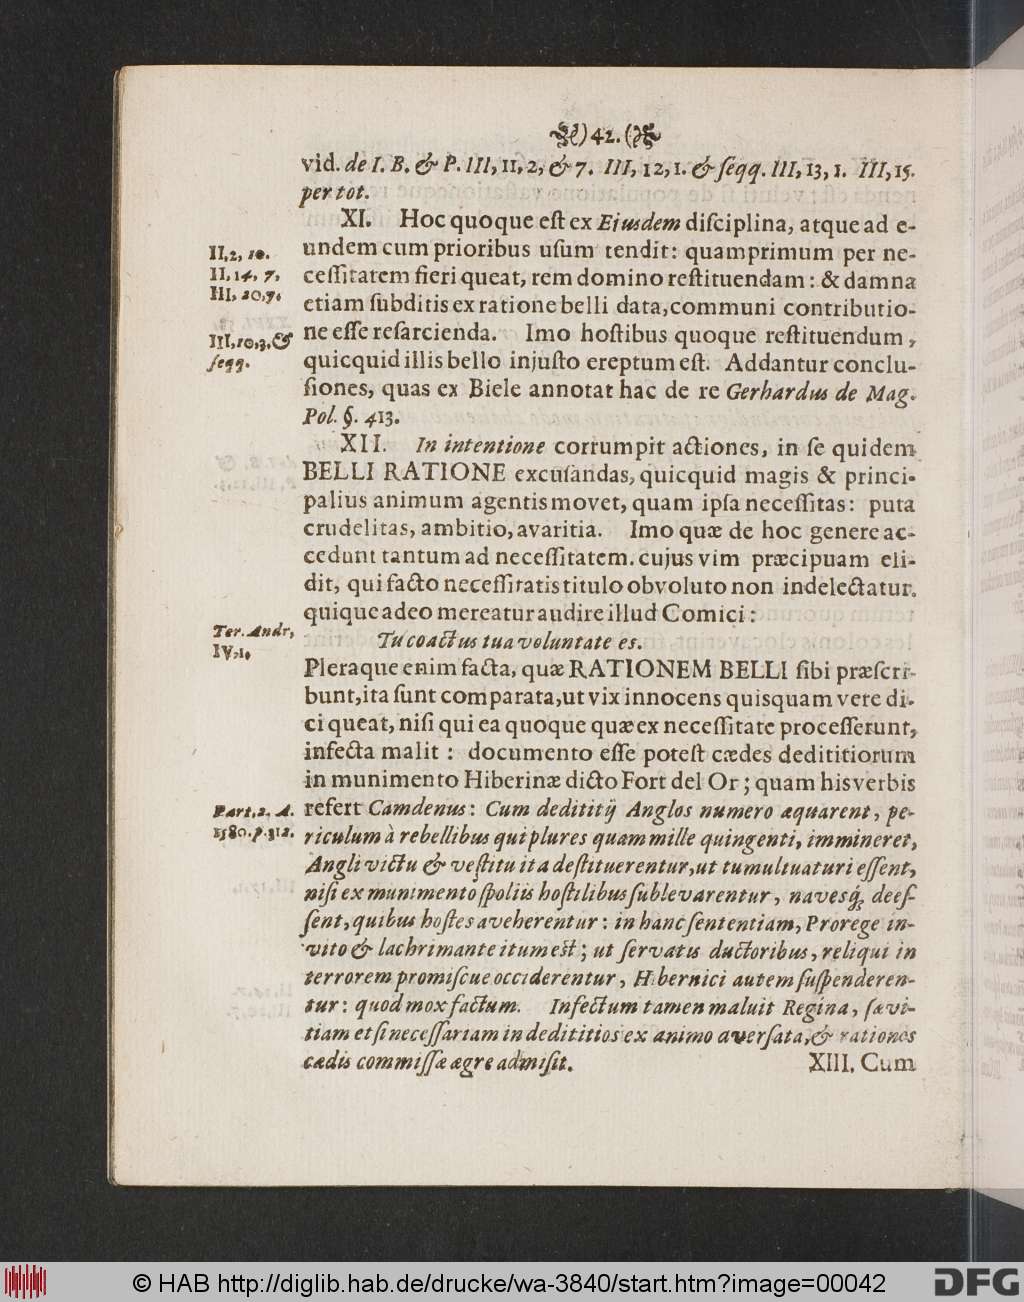 ) 42. (
vid. de I. B. & P. III, 11, 2, & 7. III, 12, 1. & ſeqq. III, 13, 1. III, 15.
per tot.
XI. Hoc quoque eſt ex Ejusdem diſciplina, atque ad e-
II, 2, 10.
undem cum prioribus uſum tendit: quamprimum per ne-
II, 14, 7,
ceſſitatem fieri queat, rem domino reſtituendam: & damna
III, 20, 7.
etiam ſubditis ex ratione belli data, communi contributio-
III, 10, 3, &
ne eſſe reſarcienda. Imo hoſtibus quoque reſtituendum,
ſeqq.
quicquid illis bello injuſto ereptum eſt. Addantur conclu-
ſiones, quas ex Biele annotat hac de re Gerhardus de Mag.
Pol. §. 413.
XII. In intentione corrumpit actiones, in ſe quidem
BELLI RATIONE excuſandas, quicquid magis & princi-
palius animum agentis movet, quam ipſa neceſſitas: puta
crudelitas, ambitio, avaritia. Imo quæ de hoc genere ac-
cedunt tantum ad neceſſitatem. cujus vim præcipuam eli-
dit, qui facto neceſſitatis titulo obvoluto non indelectatur.
quique adeo mereatur audire illud Comici:
Ter. Andr,
IV, 1,
Tu coactus tua voluntate es.
Pleraque enim facta, quæ RATIONEM BELLI ſibi præſcri-
bunt, ita ſunt comparata, ut vix innocens quisquam vere di-
ci queat, niſi qui ea quoque quæ ex neceſſitate proceſſerunt,
infecta malit: documento eſſe poteſt cædes dedititiorum
in munimento Hiberinæ dicto Fort del Or; quam his verbis
Part. 2. A.
refert Camdenus: Cum dedititij Anglos numero æquarent, pe-
1580. p. 312.
riculum à rebellibus qui plures quam mille quingenti, immineret,
Angli victu & veſtitu ita deſtituerentur, ut tumultuaturi eſſent,
niſi ex munimento ſpoliis hoſtilibus ſublevarentur, navesq́; deeſ-
ſent, quibus hoſtes aveherentur: in hanc ſententiam, Prorege in-
vito & lachrimante itum eſt; ut ſervatis ductoribus, reliqui in
terrorem promiſcue occiderentur, Hibernici autem ſuſpenderen-
tur: quod mox factum. Infectum tamen maluit Regina, ſævi-
tiam etſi neceſſariam in dedititios ex animo averſata, & rationes
cædis commiſſæ ægre admiſit.
XIII. Cum
© HAB http://diglib.hab.de/drucke/wa-3840/start.htm?image=00042
DFG